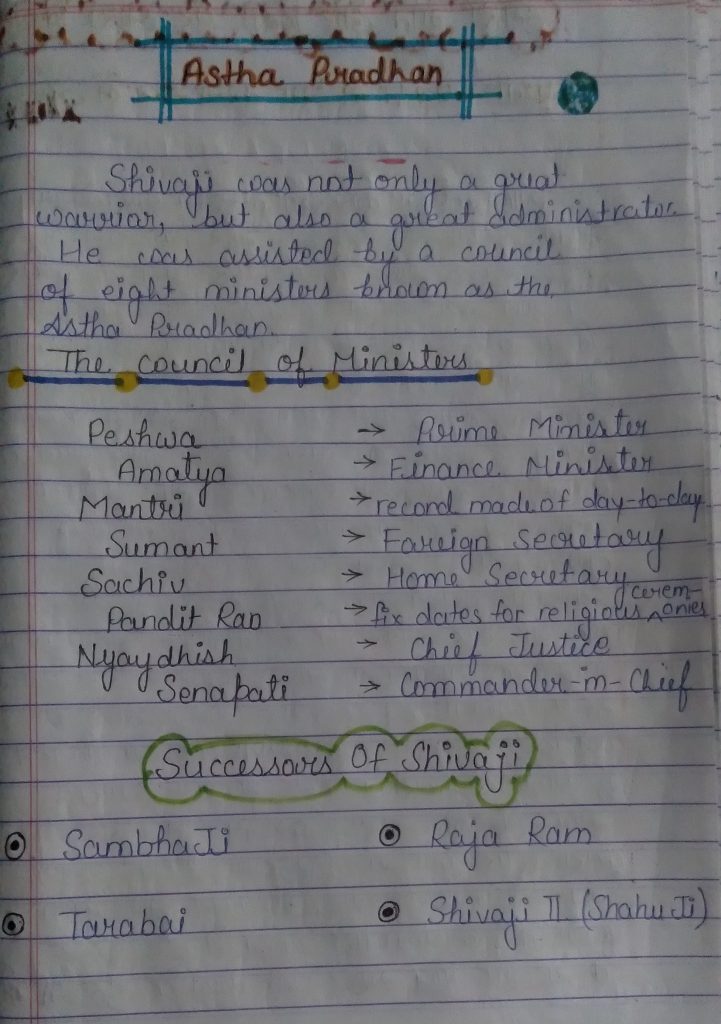 Astha Pradhan
Shivaji was not only a great
warrior, but also a great administrator.
He was assisted by a council
of eight ministers known as the
Astha Pradhan.
The council of Ministers
Peshwa → Prime Minister
Amatya → Finance Minister
Mantri → record made of day-to-day
Sumant → Foreign Secretary
Sachiv → Home Secretary
Pandit Rao → fix dates for religious ceremonies
Nyaydhish → Chief Justice
Senapati → Commander-in-Chief
Successors Of Shivaji
SambhaJi
Raja Ram
Tarabai
Shivaji II (ShahuJi)